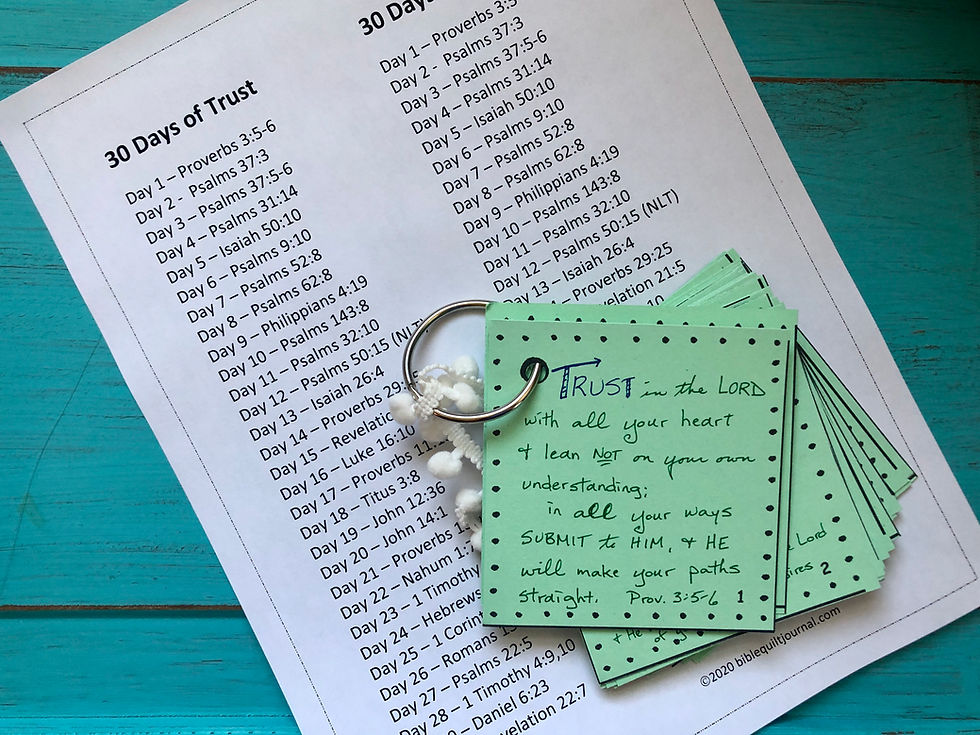 30 Days of Trust
Day 1 – Proverbs 3:5-6
Day 2 - Psalms 37:3
Day 3 – Psalms 37:5-6
Day 4 – Psalms 31:14
Day 5 – Isaiah 50:10
Day 6 – Psalms 9:10
Day 7 – Psalms 52:8
Day 8 – Psalms 62:8
Day 9 – Philippians 4:19
Day 10 – Psalms 143:8
Day 11 – Psalms 32:10
Day 12 – Psalms 50:15 (NLT)
Day 13 – Isaiah 26:4
Day 14 – Proverbs
Day 15 –
Day 16 – Luke 16:10
Day 17 – Proverbs
Day 18 – Titus 3:8
Day 19 – John 12:36
Day 20 – John 14:1
Day 21 – Proverbs
Day 22 – Nahum
Day 23 – 1 Timothy
Day 24 – Hebrews
Day 25 – 1
Day 26 – Romans
Day 27 – Psalms 22:5
Day 28 – 1 Timothy 4:9,10
– Daniel 6:23
22:7
30
Day 1 – Proverbs
Day 2 - Psalms 37:3
Day 3 – Psalms 37:5-6
Day 4 – Psalms 31:14
Day 5 – Isaiah 50:10
Day 6 – Psalms 9:10
Day 7 – Psalms 52:8
Day 8 – Psalms 62:8
Day 9 – Philippians 4:19
Day 10 – Psalms 143:8
Day 11 – Psalms 32:10
Day 12 – Psalms 50:15 (NLT)
Day 13 – Isaiah 26:4
– Proverbs 29:25
21:5
TRUST in the LORD
with all your heart
& lean NOT on your own
understanding;
in all your ways
SUBMIT to HIM, & HE
will make your paths
straight. Prov. 3:5-6 1
Lord
2
& He of
©2020 biblequiltjournal.com